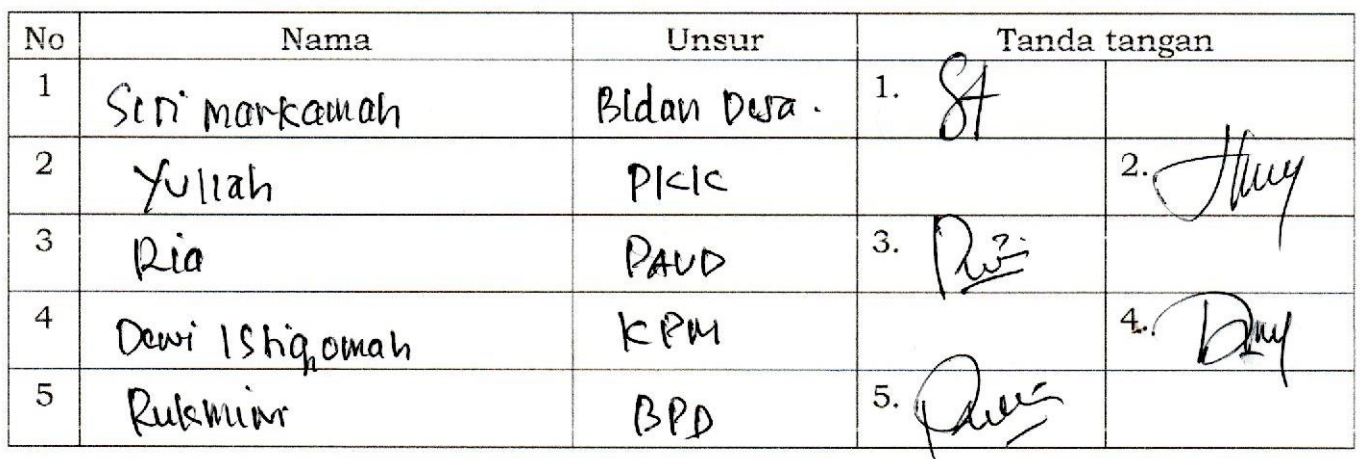 No Nama Unsur Tanda tangan
1 Siti markamah Bidan Desa. 1.
2 Yuliah PKK 2.
3 Ria PAUD 3.
4 Dewi Istiqomah KPM 4.
5 BPD 5.